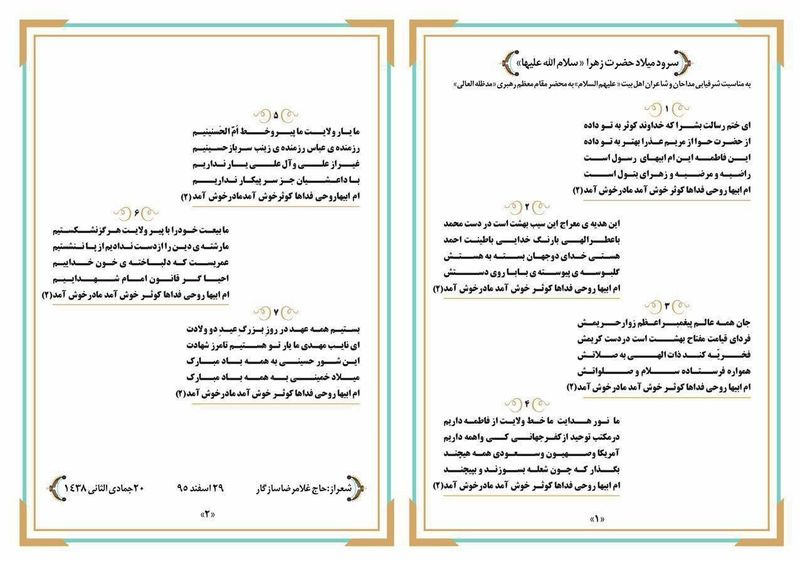 سرود میلاد حضرت زهرا «سلام الله علیها»
به مناسبت شرفیابی مداحان و شاعران اهل بیت «علیهم السلام» به محضر مقام معظم رهبری «مدظله العالی»
۱
ای ختم رسالت بشرا که خداوند کوثر به تو داده
از حضرت حوا از مریم عذرا بهتر به تو داده
این فاطمه این ام ابیهای رسول است
راضیه و مرضیه و زهرای بتول است
ام ابیها روحی فداها کوثر خوش آمد مادر خوش آمد (۲)
۲
این هدیه ی معراج این سیب بهشت است در دست محمد
با عطر الهی با رنگ خدایی با طینت احمد
هستی خدای دوجهان بسته به هستش
گلبوسه ی پیوسته ی بابا روی دستش
ام ابیها روحی فداها کوثر خوش آمد مادر خوش آمد (۲)
۳
جان همه عالم پیغمبر اعظم زوار حریمش
فردای قیامت مفتاح بهشت است در دست کریمش
فخریّه کند ذات الهی به صلاتش
همواره فرستاده سلام و صلواتش
ام ابیها روحی فداها کوثر خوش آمد مادر خوش آمد (۲)
۴
ما نور هدایت ما خط ولایت از فاطمه داریم
در مکتب توحید از کفر جهانی کی واهمه داریم
آمریکا و صهیون و سعودی همه هیچند
بگذار که چون شعله بسوزند و بپیچند
ام ابیها روحی فداها کوثر خوش آمد مادر خوش آمد (۲)
«۱»
۵
ما یار ولایت ما پیرو خط اُمّ الحَسنینیم
رزمنده ی عباس رزمنده ی زینب سرباز حسینیم
غیر از علی و آل علی یار نداریم
با داعشیان جز سر پیکار نداریم
ام ابیها روحی فداها کوثر خوش آمد مادر خوش آمد (۲)
۶
ما بیعت خود را با پیر ولایت هرگز نشکستیم
ما رشته ی دین را از دست ندادیم از پا ننشستیم
عمریست که دلباخته ی خون خداییم
احیاگر قانون امام شهداییم
ام ابیها روحی فداها کوثر خوش آمد مادر خوش آمد (۲)
۷
بستیم همه عهد در روز بزرگ عید دو ولادت
ای نایب مهدی ما یار تو هستیم تا مرز شهادت
این شور حسینی به همه باد مبارک
میلاد خمینی به همه باد مبارک
ام ابیها روحی فداها کوثر خوش آمد مادر خوش آمد (۲)
شعر از: حاج غلامرضا سازگار ۲۹ اسفند ۹۵ ۲۰ جمادی الثانی ۱۴۳۸
«۲»